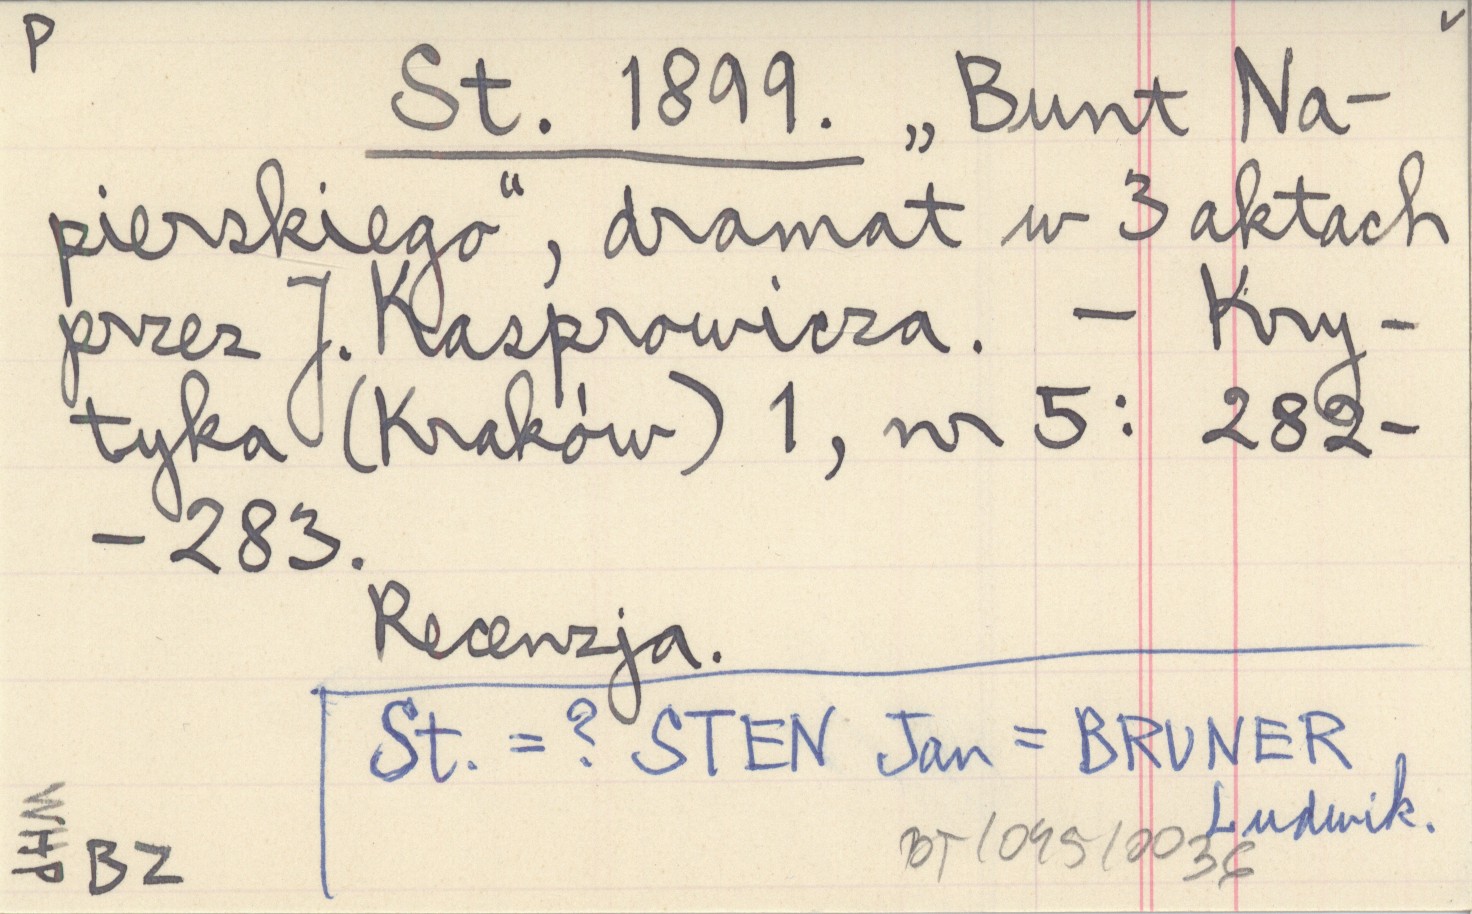 P
v
St. 1899. „Bunt Na-
pierskiego“, dramat w 3 aktach
przez J. Kasprowicza. – Kry-
tyka (Kraków) 1, nr 5: 282-
-283.
Recenzja.
St. = ? STEN Jan = BRUNER
Ludwik.
WHP
BZ